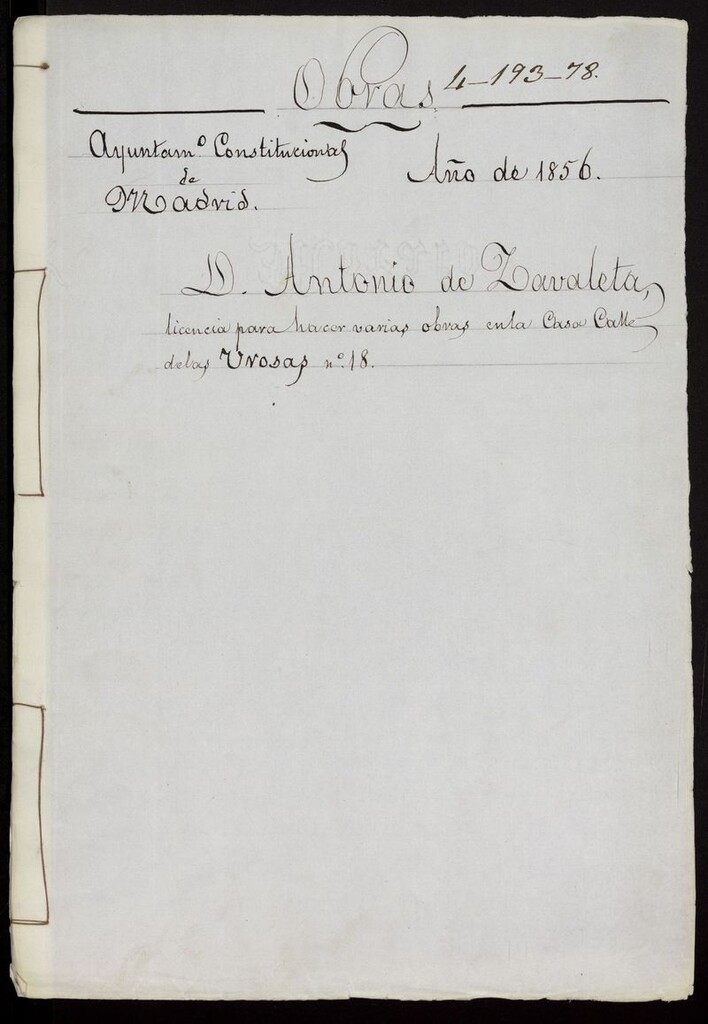 Obras. 4-193-78.
Ayuntam.º Constitucional
de
Madrid.
Año de 1856.
D. Antonio de Zavaleta,
licencia para hacer varias obras en la Casa Calle
de las Vrosas nº. 18.